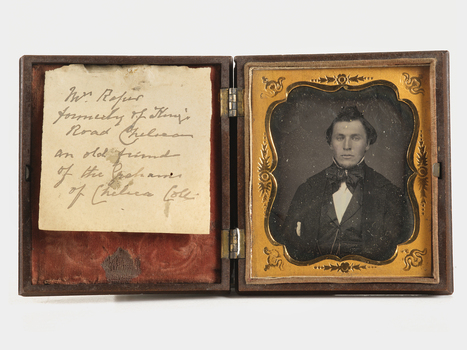 Mr. Roper
formerly of King's
Road Chelsea
an old friend
of the Grahams
of Chelsea Coll.